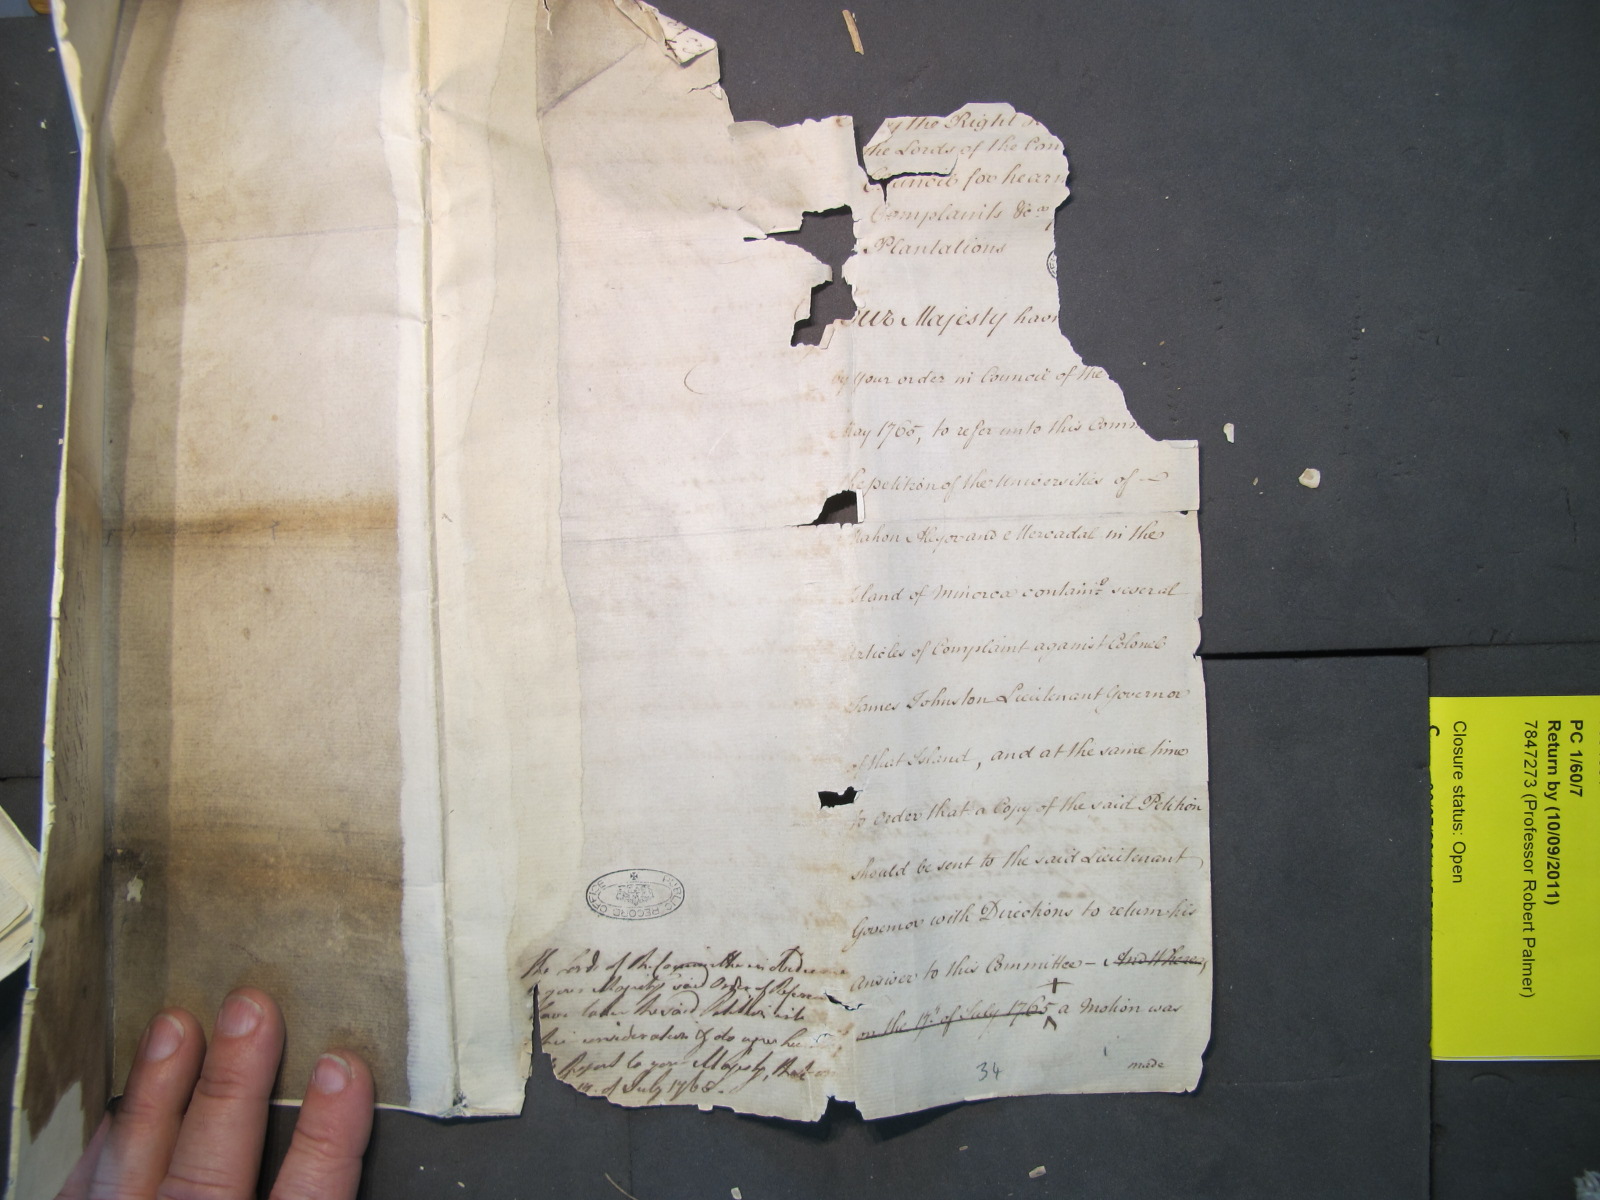 the Right
the Lords of the Com
Council for hearin
Complaints &c.
Plantations
Your Majesty havi
by Your order in Council of the
May 1765, to refer unto this Comm
the petition of the Universities of
Mahon Alayor and Mercadal in the
Island of Minorca containg several
Articles of Complaint against Colonel
James Johnston Lieutenant Governor
of that Island, and at the same time
to order that a Copy of the said Petition
should be sent to the said Lieutenant
Governor with Directions to return his
Answer to this Committee – And there
on the 17th of July 1765 a Motion was
made
34
The Lords of the Committee in Obedi
your Majestys said Order of Referen
have taken the said Petition into
consideration & do agree
Report to your Majesty, that on
17 of July 1765.
PUBLIC RECORD OFFICE
PC 1/60/7
Return by (10/09/2011)
7847273 (Professor Robert Palmer)
Closure status: Open